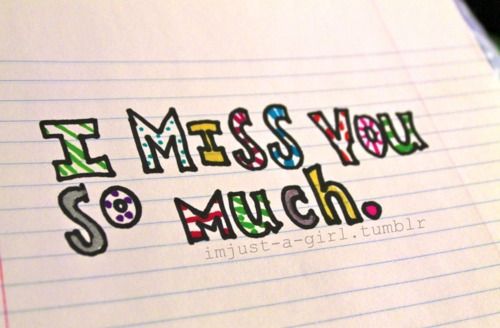 I MISS YOU
SO MUCh.
imjust-a-girl.tumblr